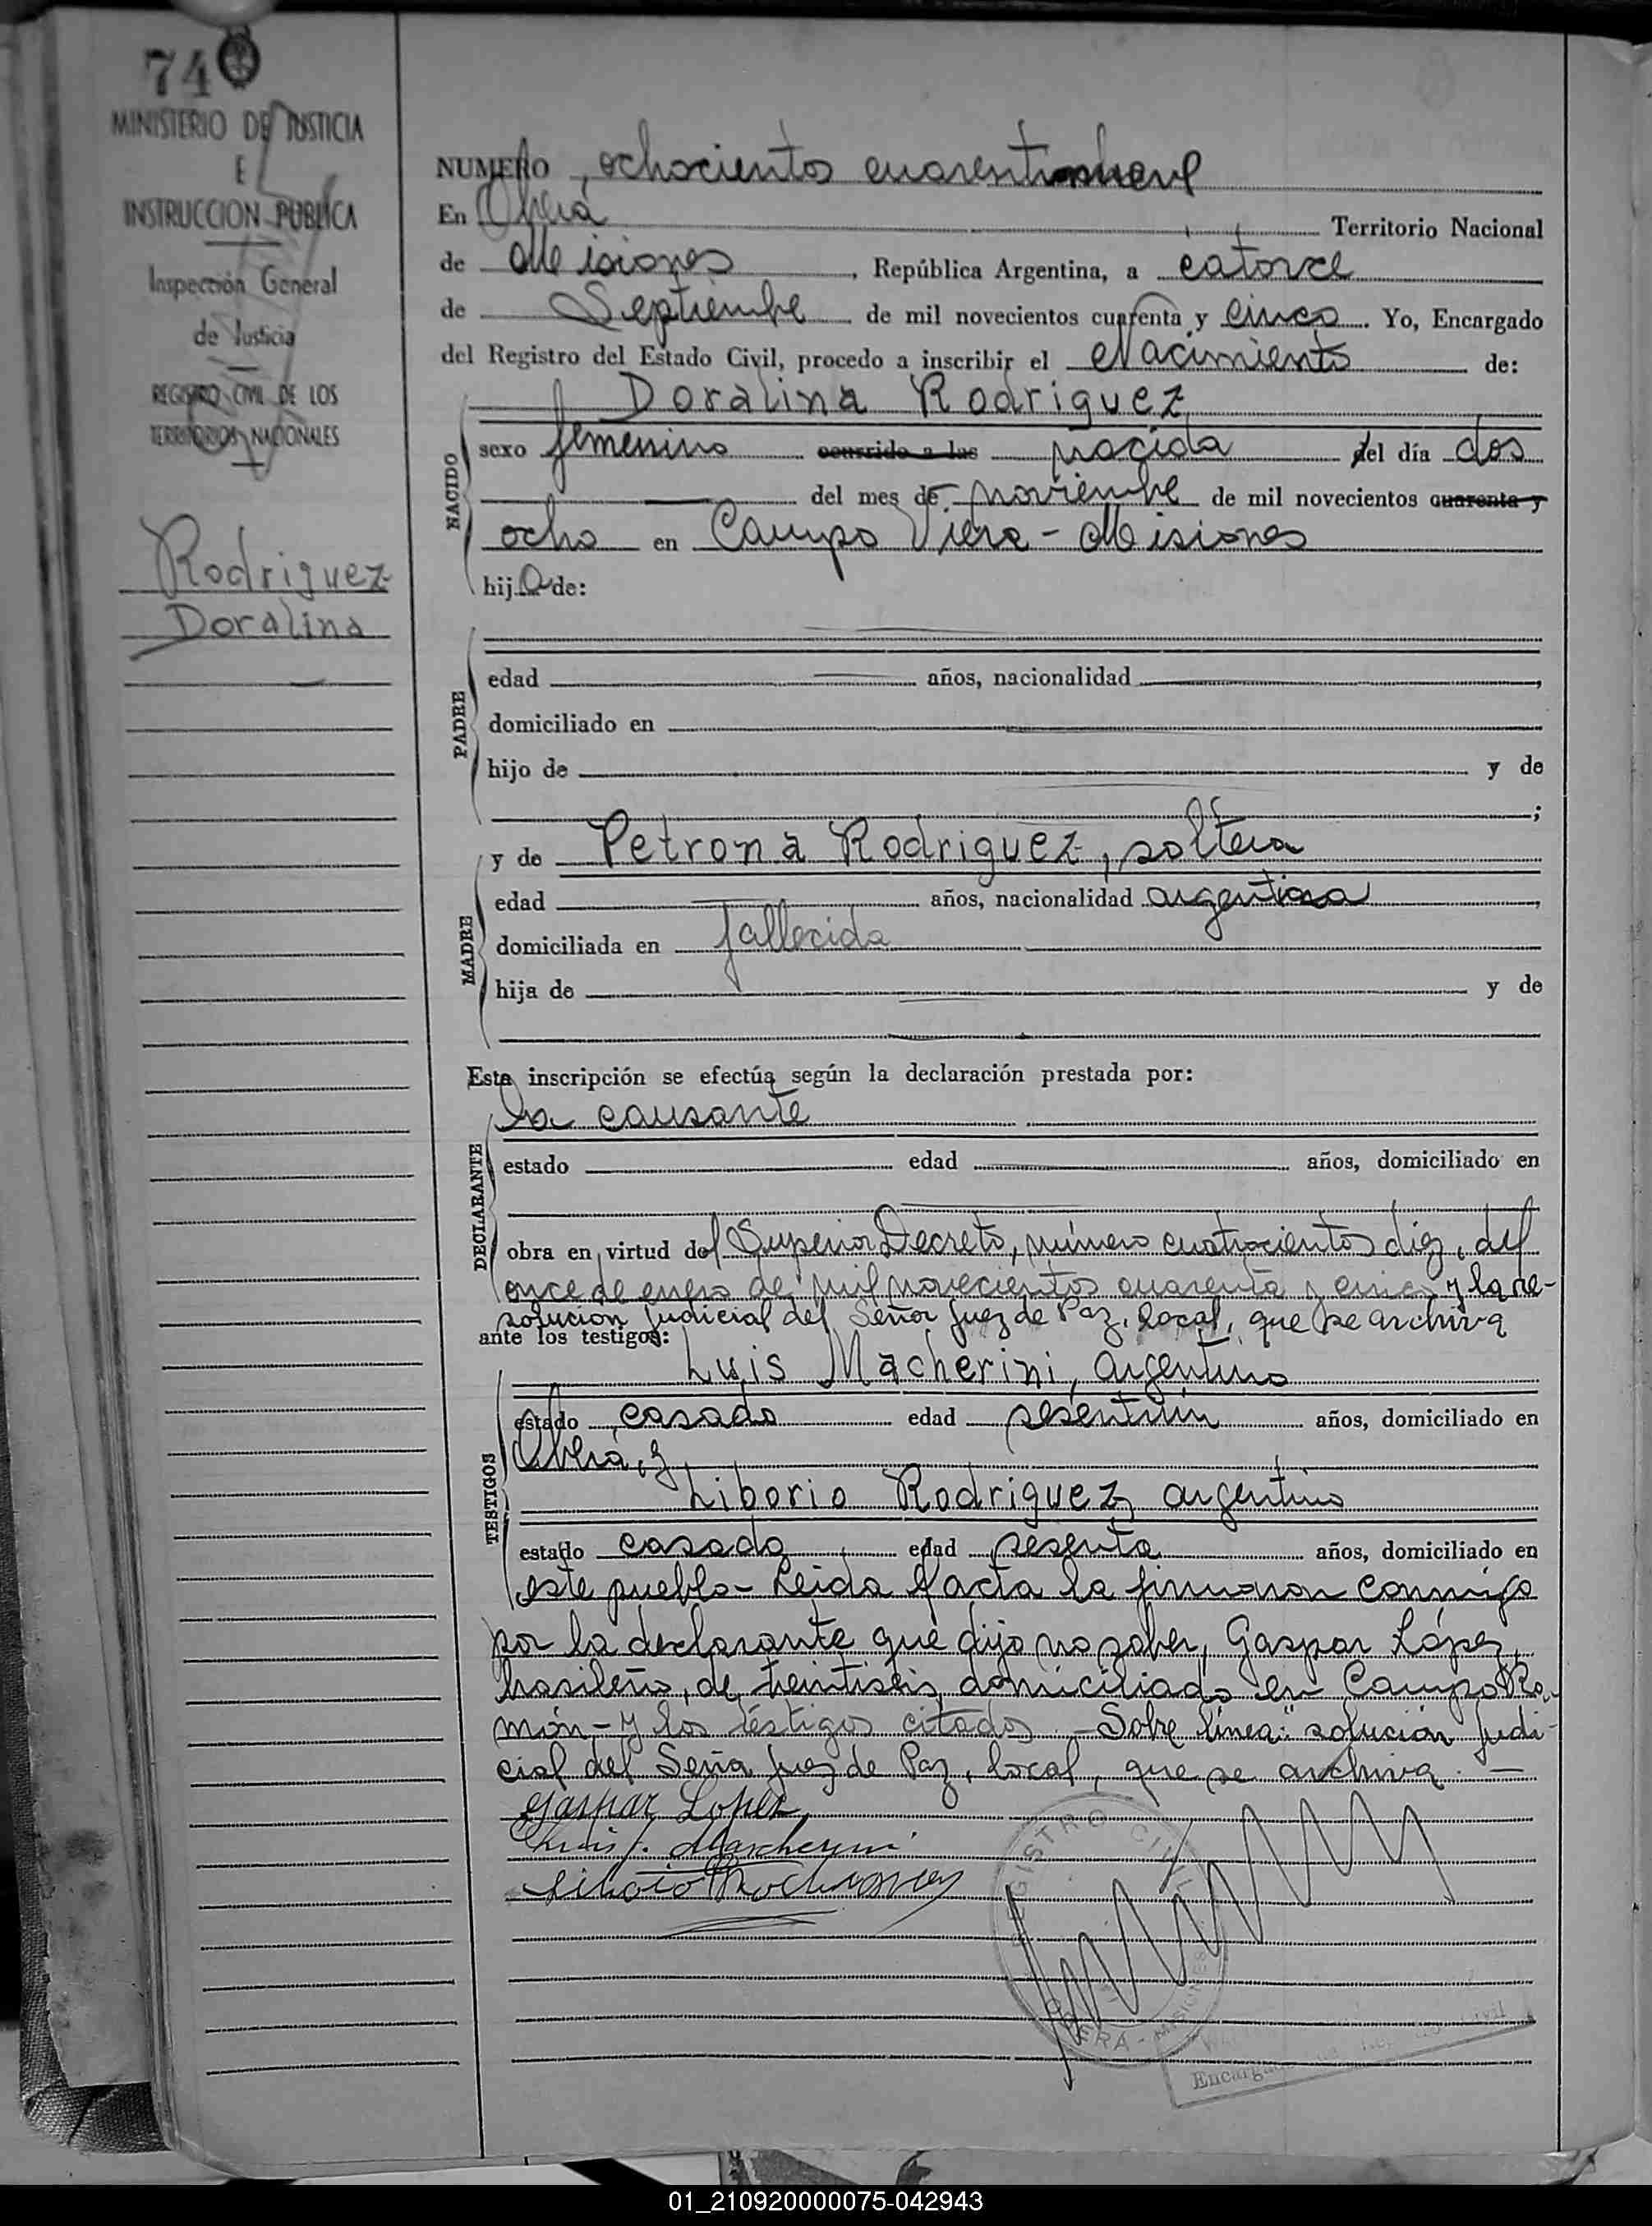 74
MINISTERIO DE JUSTICIA
E
INSTRUCCION PUBLICA
Inspección General
de Justicia
REGISTRO CIVIL DE LOS
TERRITORIOS NACIONALES
Rodriguez
Doralina
NUMERO ochocientos cuarentinueve
En Oberá Territorio Nacional
de Misiones, República Argentina, a catorce
de Septiembre de mil novecientos cuarenta y cinco. Yo, Encargado
del Registro del Estado Civil, procedo a inscribir el Nacimiento de:
Doralina Rodriguez
NACIDO
sexo femenino ocurrido a las nacida del día dos
del mes de noviembre de mil novecientos cuarenta y
ocho en Campo Viera - Misiones
hija de:
PADRE
edad años, nacionalidad ,
domiciliado en
hijo de y de
;
MADRE
y de Petrona Rodriguez, soltera
edad años, nacionalidad argentina,
domiciliada en fallecida
hija de y de
Esta inscripción se efectúa según la declaración prestada por:
DECLARANTE
la causante
estado edad años, domiciliado en
obra en virtud del Superior Decreto, número cuatrocientos diez, del
once de enero de mil novecientos cuarenta y cinco y la re-
solución judicial del Señor Juez de Paz, local, que se archiva
ante los testigos:
TESTIGOS
Luis Macherini, argentino
estado casado edad sesentiún años, domiciliado en
Oberá, y
Liborio Rodriguez, argentino
estado casado edad sesenta años, domiciliado en
este pueblo - Leida el acta la firmaron conmigo
por la declarante que dijo no saber, Gaspar López,
brasileño, de treintiséis, domiciliado en Campo Ra-
món - y los testigos citados - Sobre línea: "solución judi-
cial del Señor Juez de Paz, local, que se archiva. -
Gaspar Lopez
Luis J. Mascherini
Liborio Rodriguez
REGISTRO CIVIL
OBERA - MISIONES
01_210920000075-042943